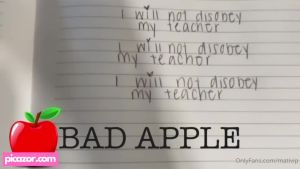 I will not disobey
my teacher
I will not disobey
my teacher
I will not disobey
my teacher
BAD APPLE
picazor.com
OnlyFans.com/mativip